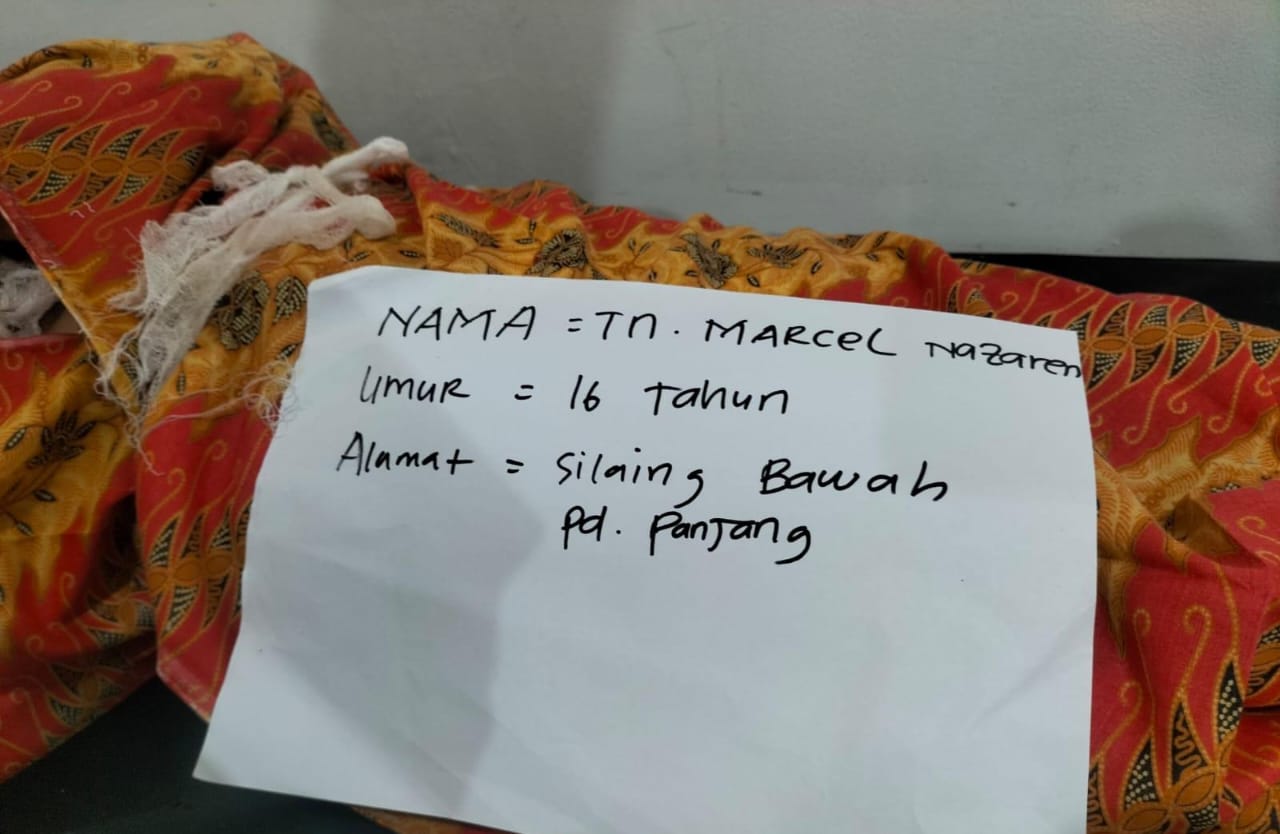 NAMA = Tn. MARCEL Nazaren
Umur = 16 Tahun
Alamat = Silaing Bawah
Pd. Panjang